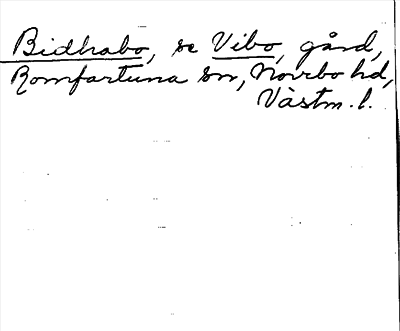 Bidhabo, se Vibo, gård,
Romfartuna sn, Norrbo hd,
Västm. l.